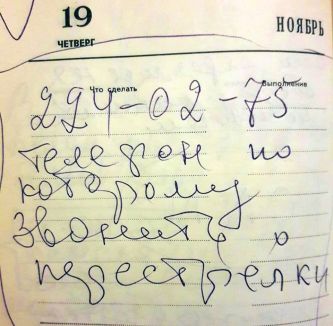 19 НОЯБРЬ
ЧЕТВЕРГ
Что сделать Выполнение
224-02-75
телефон по
которому
звонить о
перестрелки